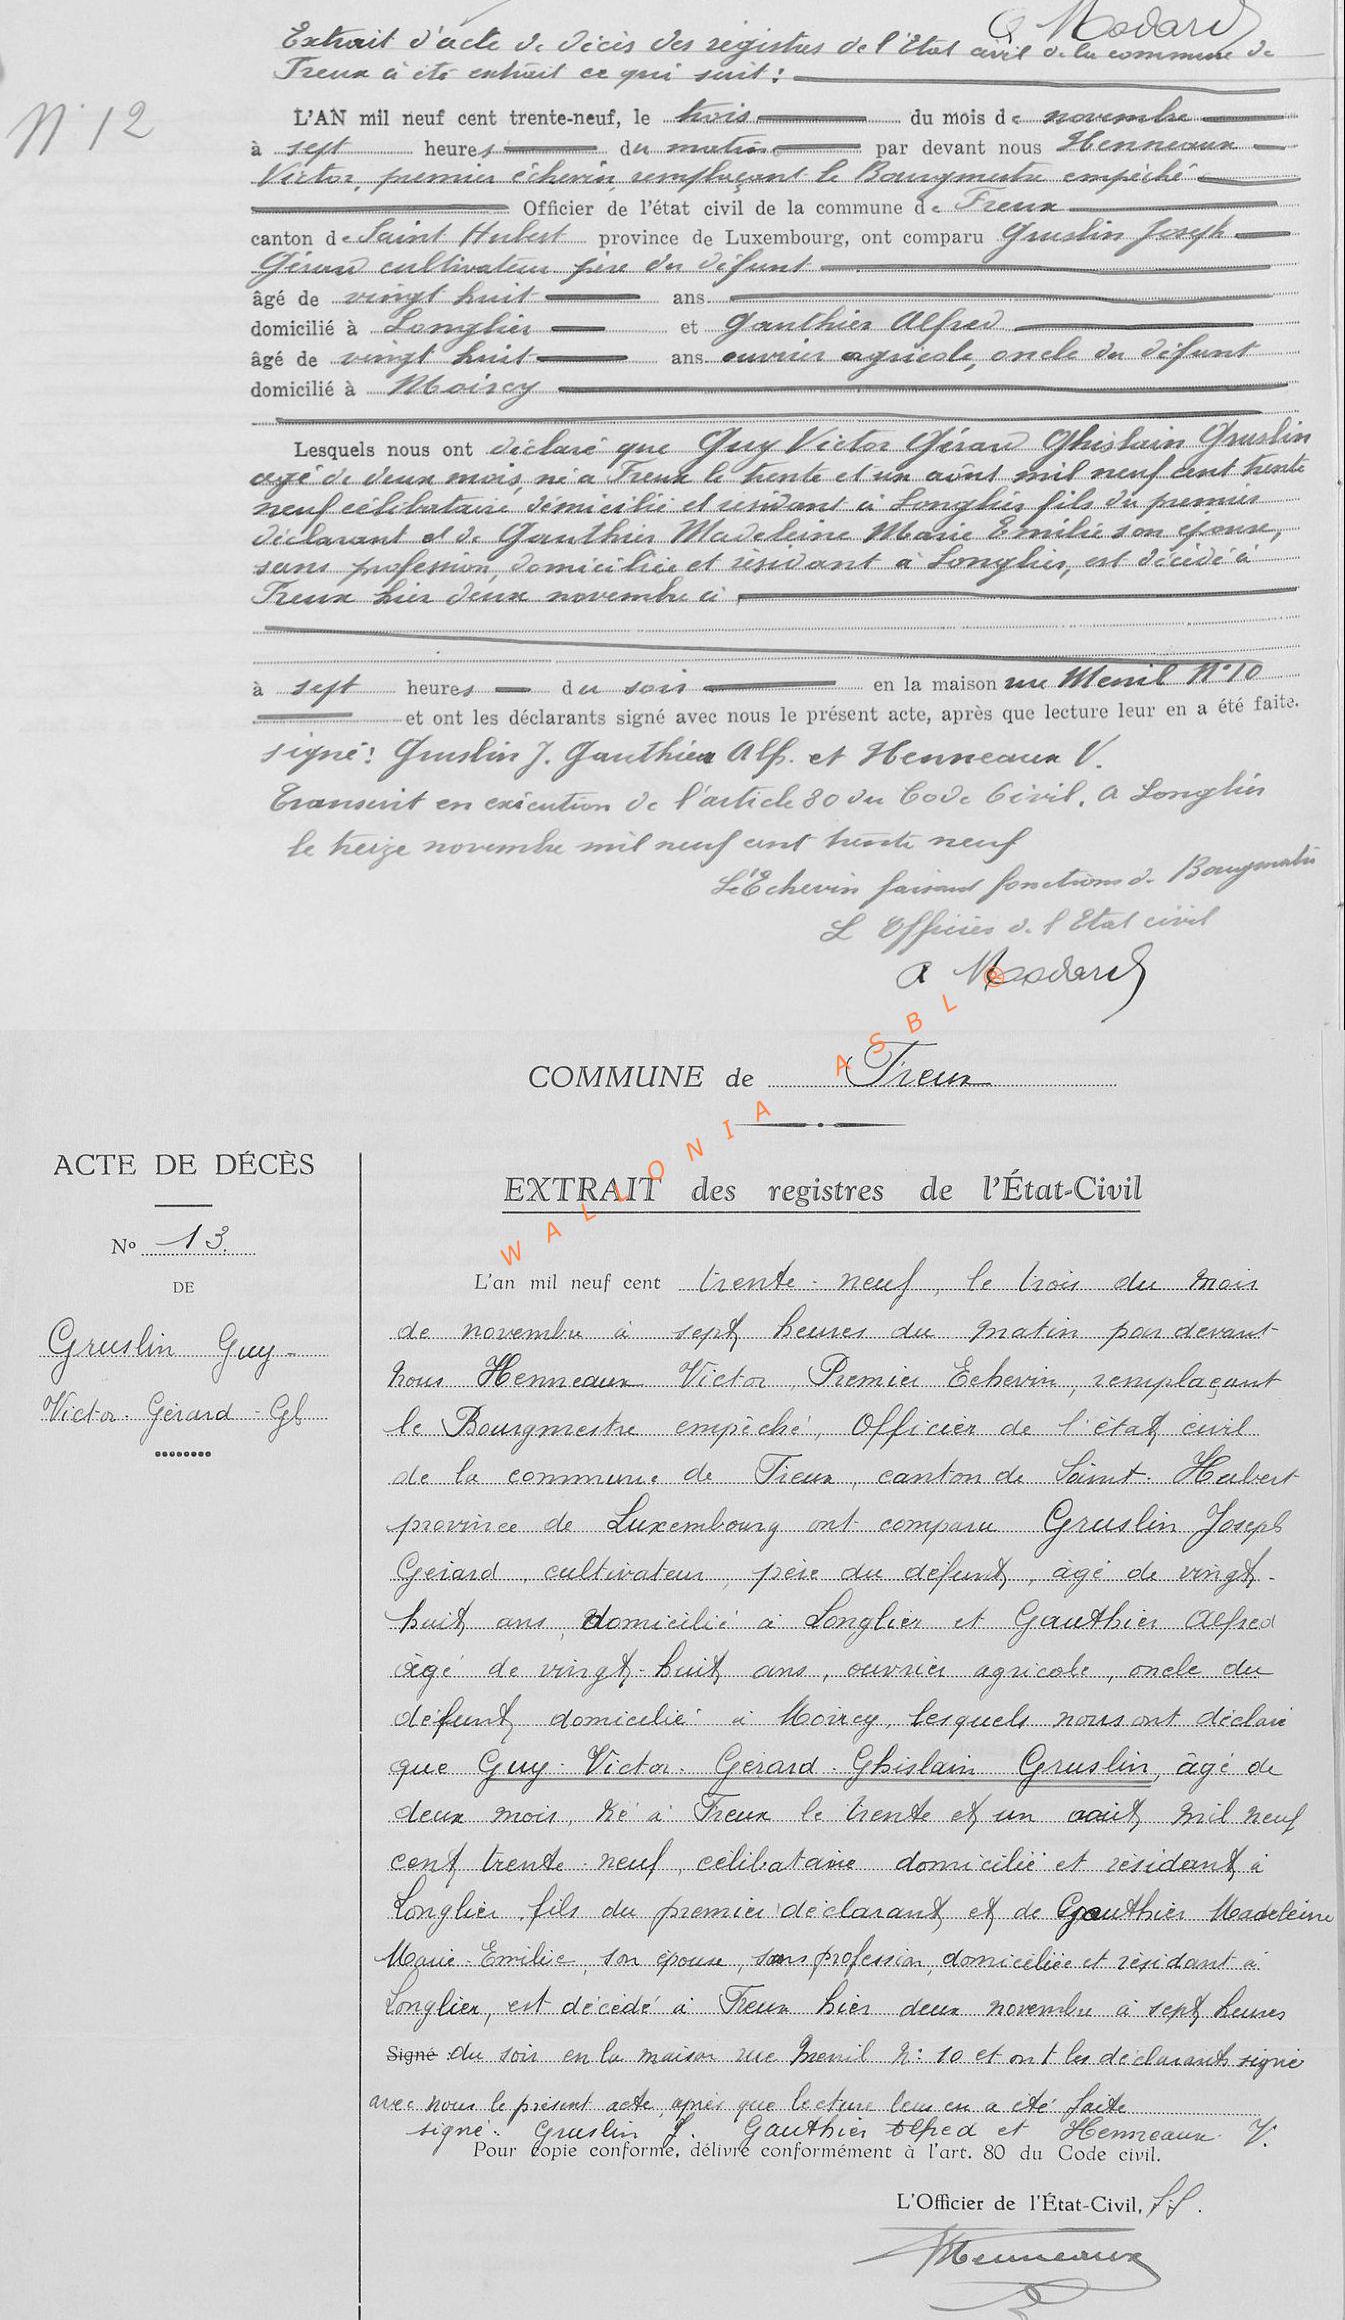 a Modard
Extrait d'acte de décès des registres de l'Etat civil de la commune de
Freux à été extrait ce qui suit :
N° 12
L'AN mil neuf cent trente-neuf, le trois du mois de novembre
à sept heures du matin par devant nous Henneaux
Victor, premier échevin, remplaçant le Bourgmestre empêché
Officier de l'état civil de la commune de Freux
canton de Saint Hubert province de Luxembourg, ont comparu Gruslin Joseph
Gérard cultivateur père du défunt
âgé de vingt huit ans
domicilié à Longlier et Gauthier Alfred
âgé de vingt huit ans ouvrier agricole, oncle du défunt
domicilié à Moircy
Lesquels nous ont déclaré que Guy Victor Gérard Ghislain Gruslin
agé de deux mois, né à Freux le trente et un août mil neuf cent trente
neuf célibataire démicilié et résidant à Longlier fils du premier
déclarant et de Gauthier Madeleine Marie Emilie son épouse,
sans profession, domiciliée et résidant à Longlier, est décédé à
Freux hier deux novembre à
à sept heures du soir en la maison rue Menil N° 10
et ont les déclarants signé avec nous le présent acte, après que lecture leur en a été faite.
signé : Gruslin J. Gauthier Alf. et Henneaux V.
Transcrit en exécution de l'article 80 du Code Civil, A Longlier
le treize novembre mil neuf cent trente neuf
L'Echevin faisant fonctions de Bourgmestre
L'Officier de l'Etat civil
a Modard
WALLONIA ASBL ®
COMMUNE de Freux
ACTE DE DÉCÈS
No 13.
DE
Gruslin Guy-
Victor-Gérard-Gh
EXTRAIT des registres de l'État-Civil
L'an mil neuf cent trente-neuf, le trois du mois
de novembre à sept heures du matin par devant
nous Henneaux Victor, Premier Echevin, remplaçant
le Bourgmestre empêché, Officier de l'état civil
de la commune de Freux, canton de Saint-Hubert
province de Luxembourg ont comparu Gruslin Joseph
Gérard, cultivateur, père du défunt, âgé de vingt-
huit ans, domicilié à Longlier et Gauthier Alfred
âgé de vingt-huit ans, ouvrier agricole, oncle du
défunt, domicilié à Moircy, lesquels nous ont déclaré
que Guy-Victor-Gérard-Ghislain Gruslin, âgé de
deux mois, né à Freux le trente et un août mil neuf
cent trente-neuf, célibataire domicilié et résidant à
Longlier, fils du premier déclarant et de Gauthier Madeleine
Marie-Emilie, son épouse, sans profession, domiciliée et résidant à
Longlier, est décédé à Freux hier deux novembre à sept heures
Signé du soir en la maison rue Menil N: 10 et ont les déclarants signé
avec nous le présent acte, après que lecture leur en a été faite
signé: Gruslin J. Gauthier Alfred et Henneaux V.
Pour copie conforme, délivré conformément à l'art. 80 du Code civil.
L'Officier de l'État-Civil, ff.
Henneaux